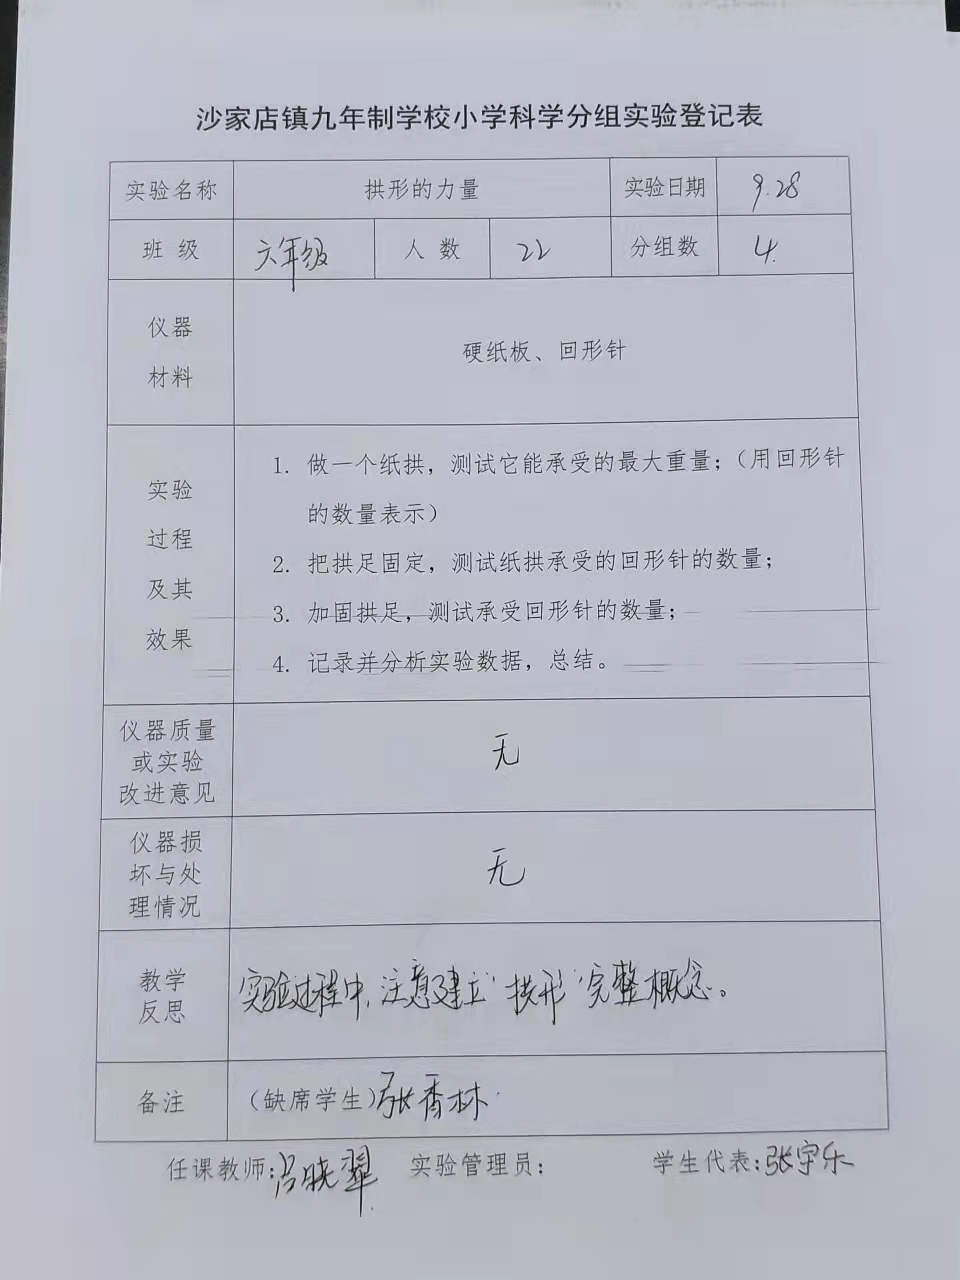 沙家店镇九年制学校小学科学分组实验登记表
实验名称 拱形的力量 实验日期 9.28
班 级 六年级 人 数 22 分组数 4.
仪器
材料
硬纸板、回形针
实验
过程
及其
效果
1. 做一个纸拱，测试它能承受的最大重量；（用回形针
的数量表示）
2. 把拱足固定，测试纸拱承受的回形针的数量；
3. 加固拱足，测试承受回形针的数量；
4. 记录并分析实验数据，总结。
仪器质量
或实验
改进意见
无
仪器损
坏与处
理情况
无
教学
反思
实验过程中,注意建立"拱形"完整概念。
备注
（缺席学生）张香林
任课教师:吕晓翠 实验管理员: 学生代表:张宇乐